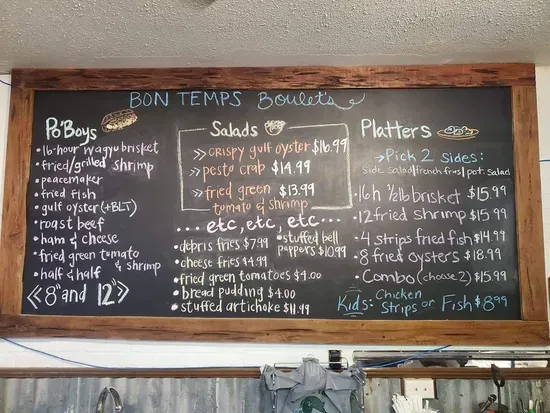 BON TEMPS Boulet's
Po'Boys
• 16-hour wagyu brisket
• fried/grilled shrimp
• peacemaker
• fried fish
• gulf oyster (+BLT)
• roast beef
• ham & cheese
• fried green tomato
& shrimp
• half & half
<< 8" and 12" >>
Salads
>> crispy gulf oyster $16.99
>> pesto crab $14.99
>> fried green $13.99
tomato & shrimp
... etc, etc, etc...
• debris fries $7.99
• cheese fries $4.99
• stuffed bell
peppers $10.99
• fried green tomatoes $4.00
• bread pudding $4.00
• stuffed artichoke $11.99
Platters
→ Pick 2 sides:
side salad|french fries|pot. salad
• 16h 1/2lb brisket $15.99
• 12 fried shrimp $15.99
• 4 strips fried fish $14.99
• 8 fried oysters $18.99
• Combo (choose 2) $15.99
Kids: Chicken
Strips or Fish $8.99